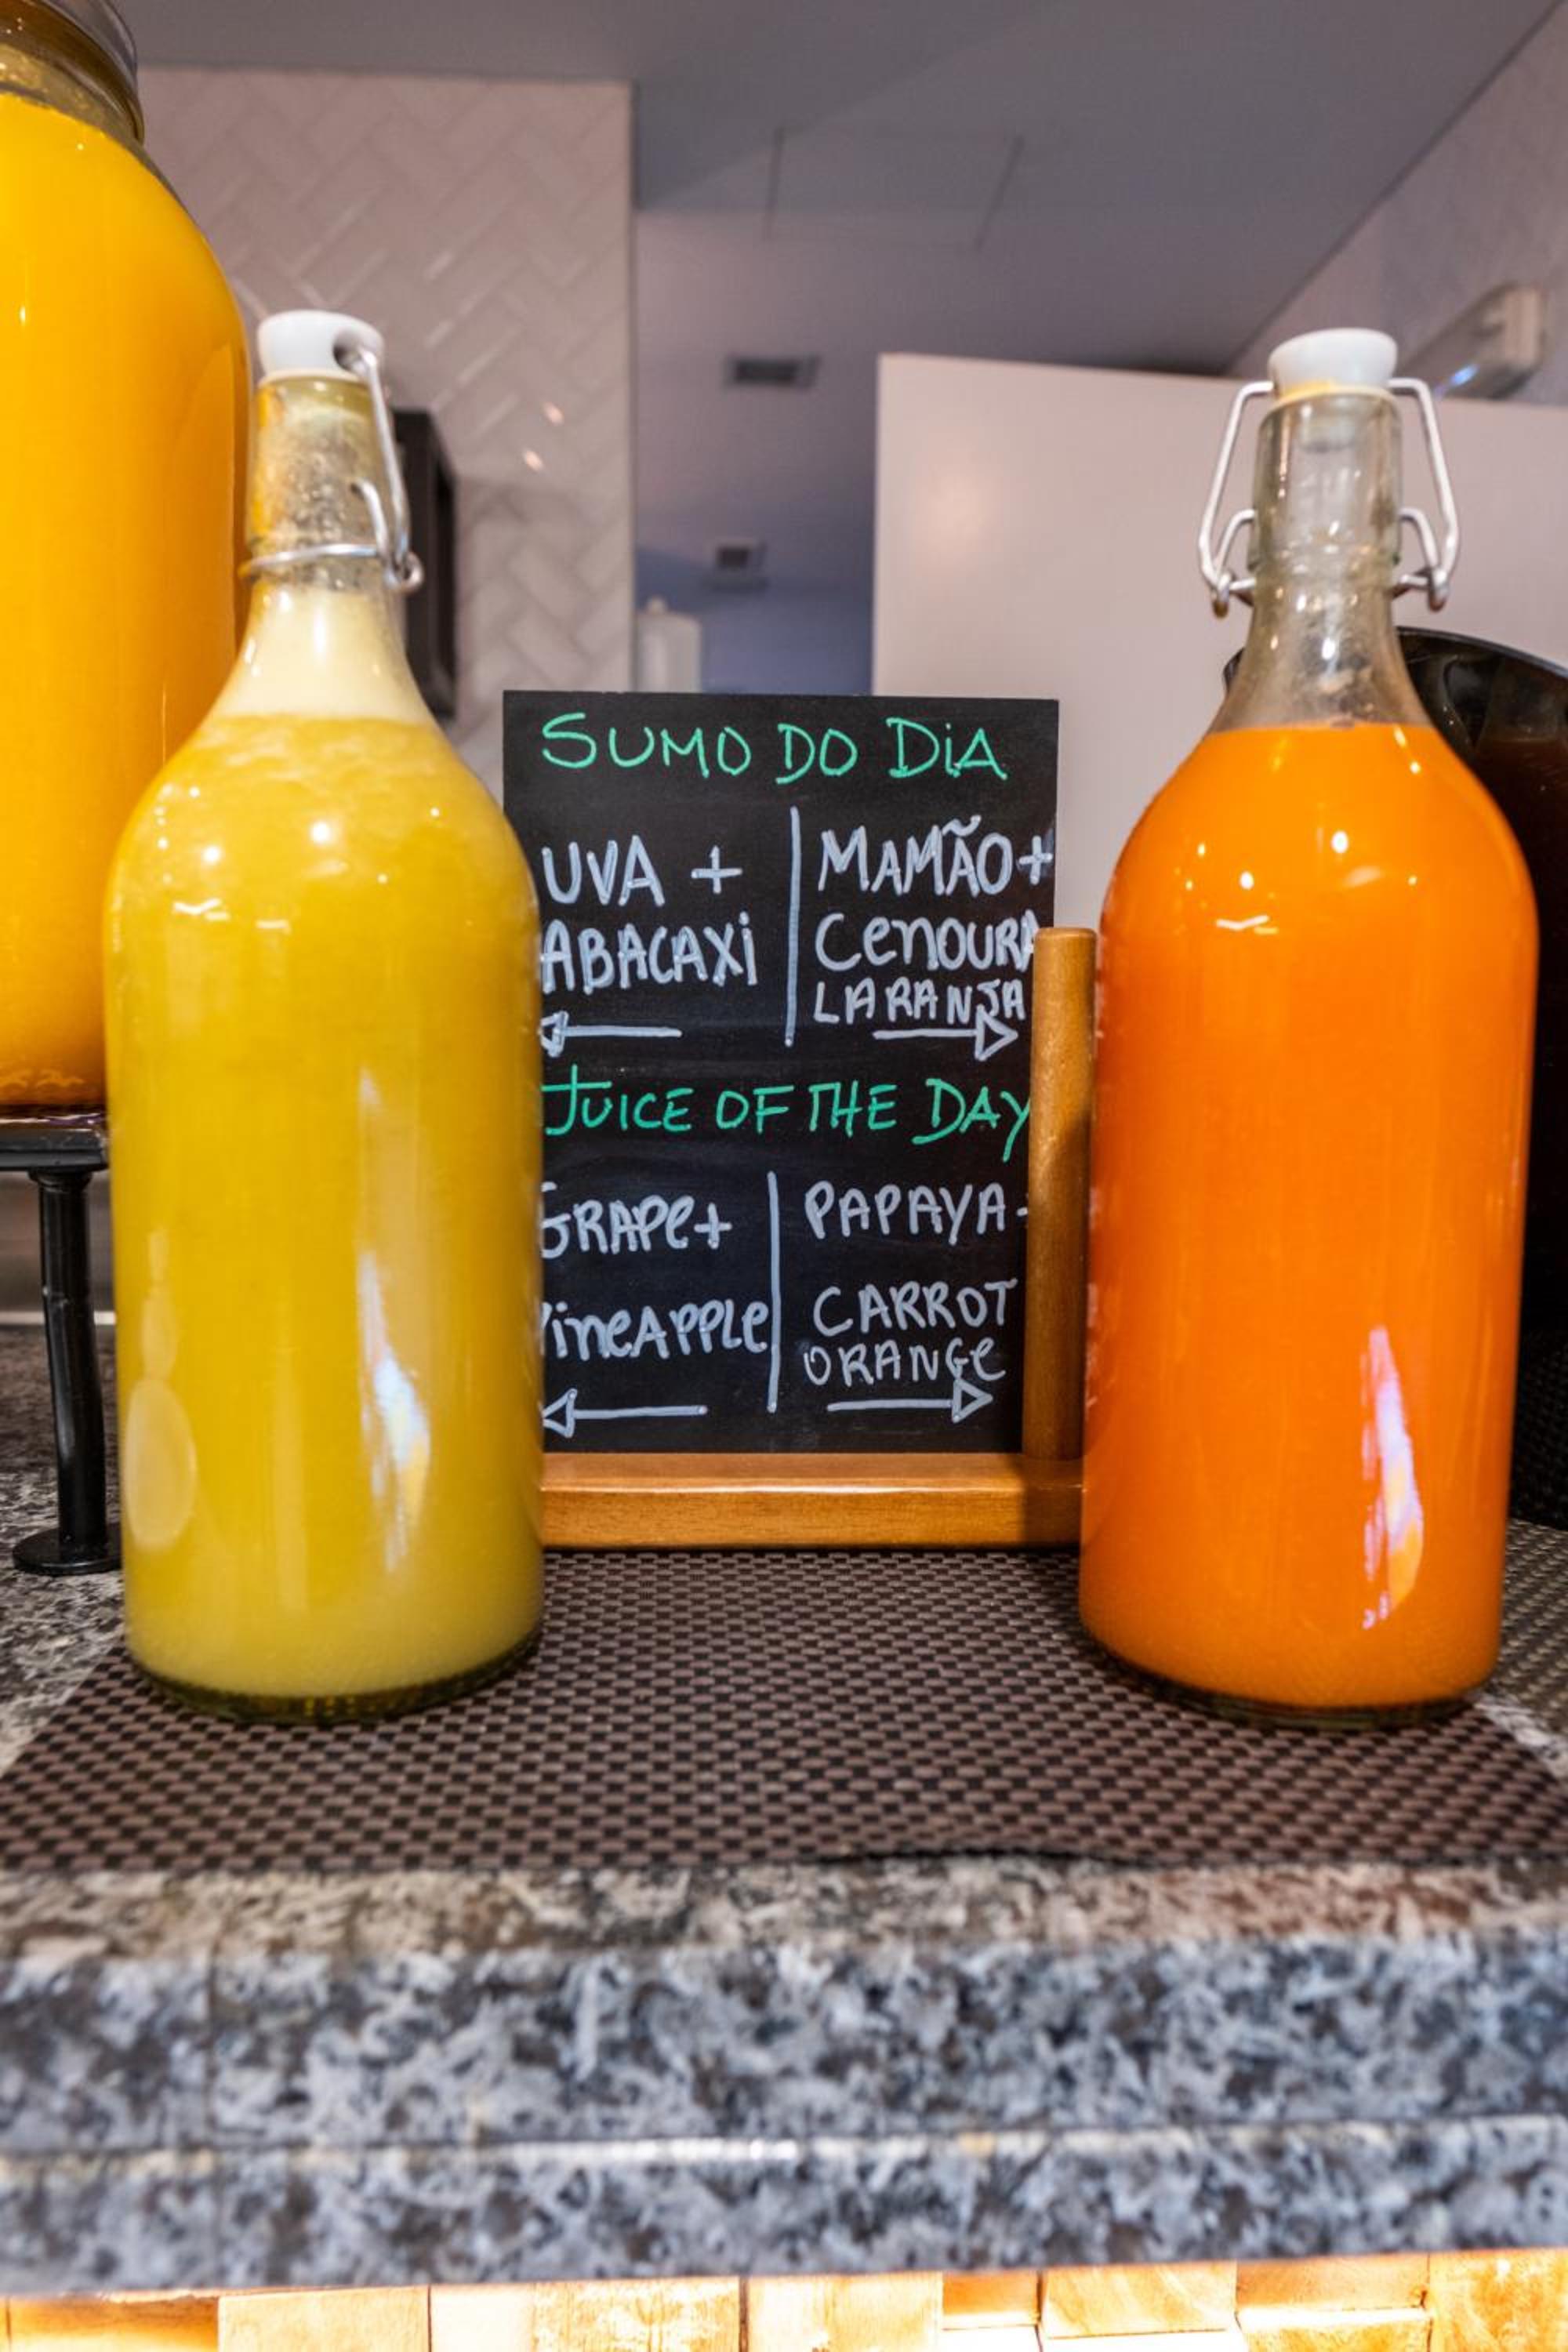 SUMO DO DiA
UVA +
ABACAXi
MAMÃO+
CenOURA
LARANJA
JUICE OF THE DAY
GRAPe+
PineAPPLe
PAPAYA+
CARROT
ORANGe